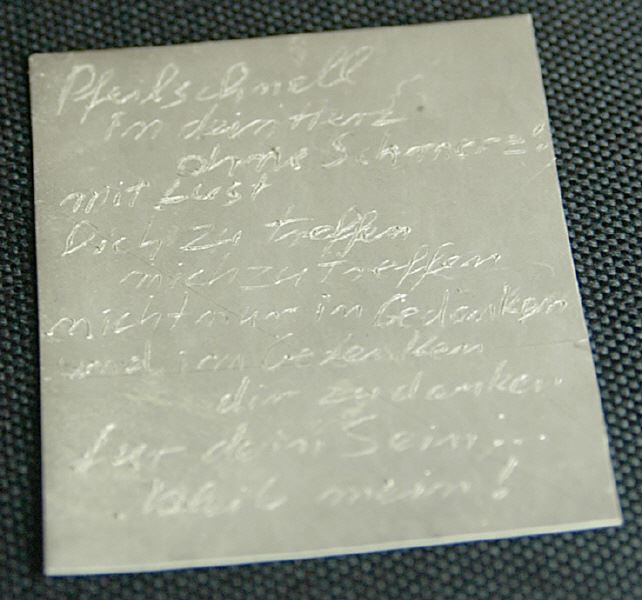 Pfeilschnell
in dein Herz
ohne Schmerz!
mit Lust
Dich zu treffen
mich zu treffen
nicht nur in Gedanken
und im Gedenken
dir zu danken
für dein Sein...
bleib mein!